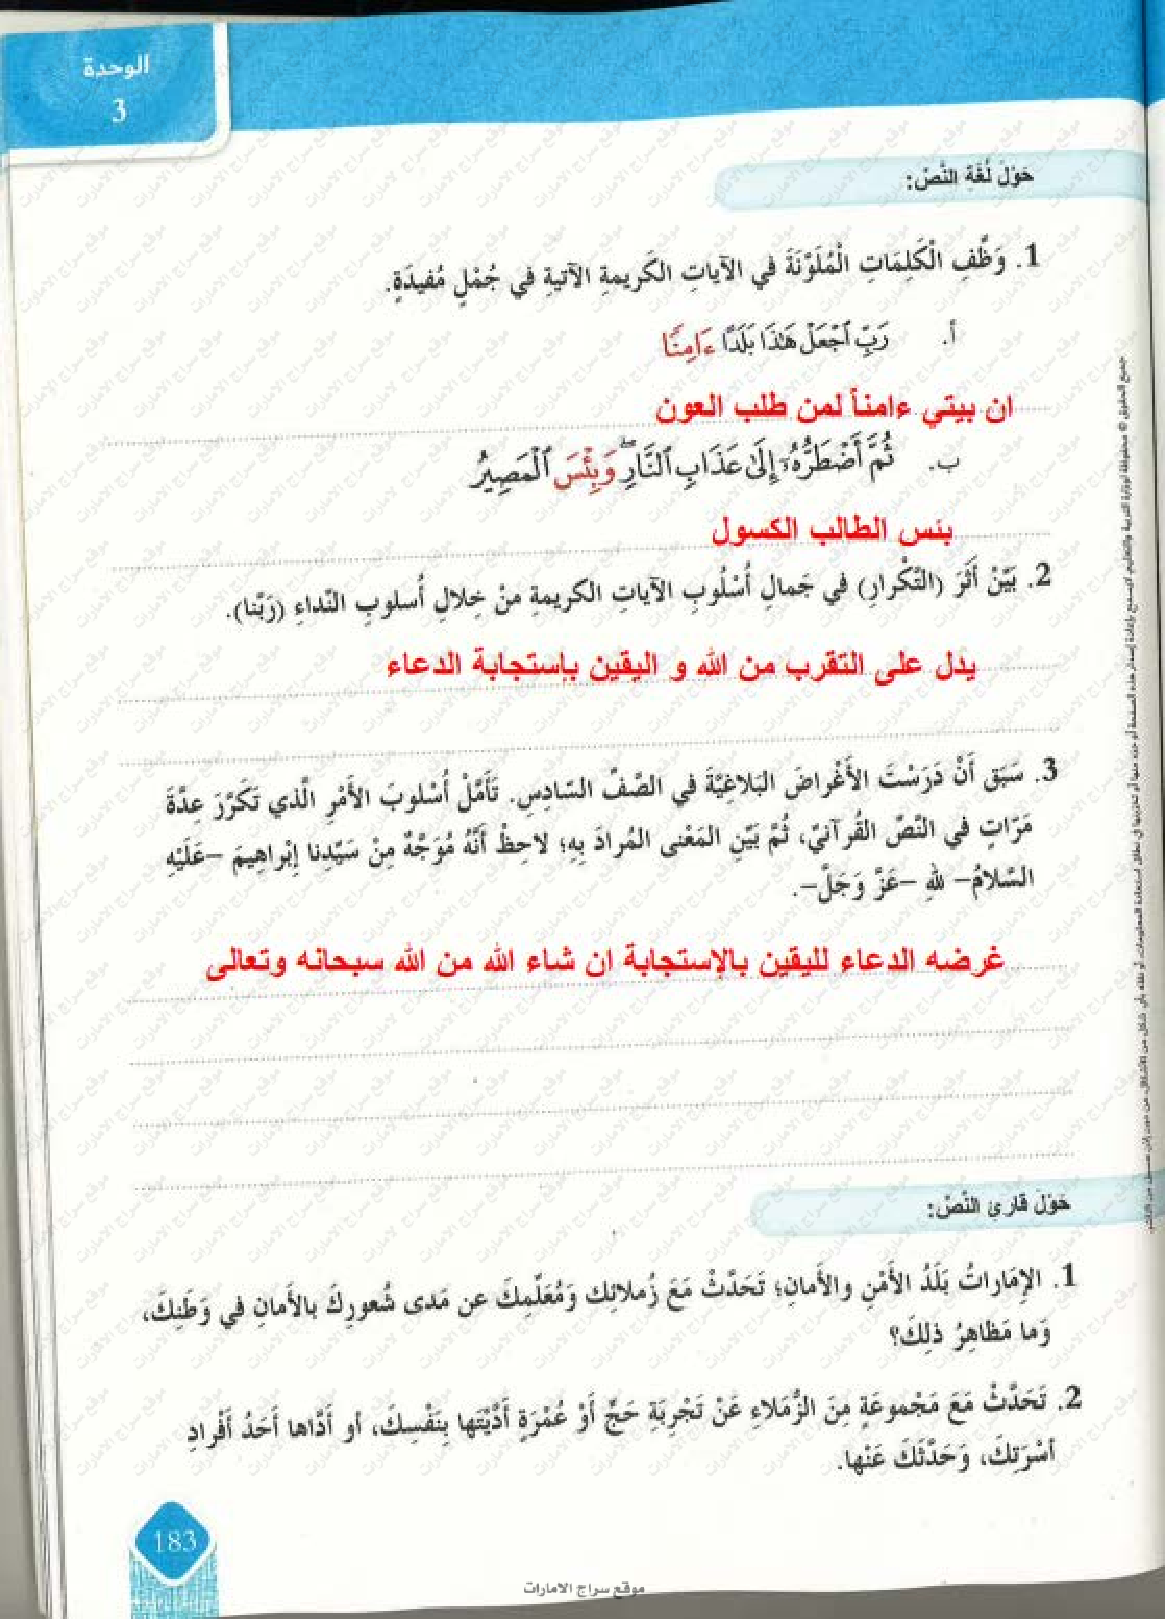 الوحدة
3
حَوْلَ لُغَةِ النَّصِّ:
1. وَظِّفِ الْكَلِمَاتِ الْمُلَوَّنَةَ في الآياتِ الكَريمةِ الآتيةِ في جُمْلٍ مُفيدَةٍ.
أ. رَبِّ ٱجْعَلْ هَٰذَا بَلَدًا ءَامِنًا
ان بيتي ءامناً لمن طلب العون
ب. ثُمَّ أَضْطَرُّهُۥٓ إِلَىٰ عَذَابِ ٱلنَّارِۖ وَبِئْسَ ٱلْمَصِيرُ
بئس الطالب الكسول
2. بَيِّنْ أَثَرَ (التَّكْرارِ) في جَمالِ أُسْلُوبِ الآياتِ الكريمةِ منْ خِلالِ أُسلوبِ النِّداءِ (رَبَّنا).
يدل على التقرب من الله و اليقين بإستجابة الدعاء
3. سَبَق أَنْ دَرَسْتَ الأَغْراضَ البَلاغِيَّةَ في الصَّفِّ السّادِسِ. تَأَمَّلْ أُسْلوبَ الأَمْرِ الَّذي تَكَرَّرَ عِدَّةَ
مَرّاتٍ في النَّصِّ القُرآنيِّ، ثُمَّ بَيِّنِ المَعْنى المُرادَ بِهِ؛ لاحِظْ أَنَّهُ مُوَجَّهٌ مِنْ سَيِّدِنا إِبْراهيمَ –عَلَيْهِ
السَّلامُ– للهِ –عَزَّ وَجَلَّ–.
غرضه الدعاء لليقين بالإستجابة ان شاء الله من الله سبحانه وتعالى
حَوْلَ قارِئِ النَّصِّ:
1. الإِمَاراتُ بَلَدُ الأَمْنِ والأَمانِ؛ تَحَدَّثْ مَعَ زُملائِك وَمُعَلِّمِكَ عن مَدى شُعورِكَ بالأَمانِ في وَطَنِكَ،
وَما مَظاهِرُ ذلِكَ؟
2. تَحَدَّثْ مَعَ مَجْموعَةٍ مِنَ الزُّمَلاءِ عَنْ تَجْرِبَةِ حَجٍّ أَوْ عُمْرَةٍ أَدَّيْتَها بِنَفْسِكَ، أو أَدَّاها أَحَدُ أَفْرادِ
أسْرَتِكَ، وَحَدَّثَكَ عَنْها.
183
موقع سراج الامارات